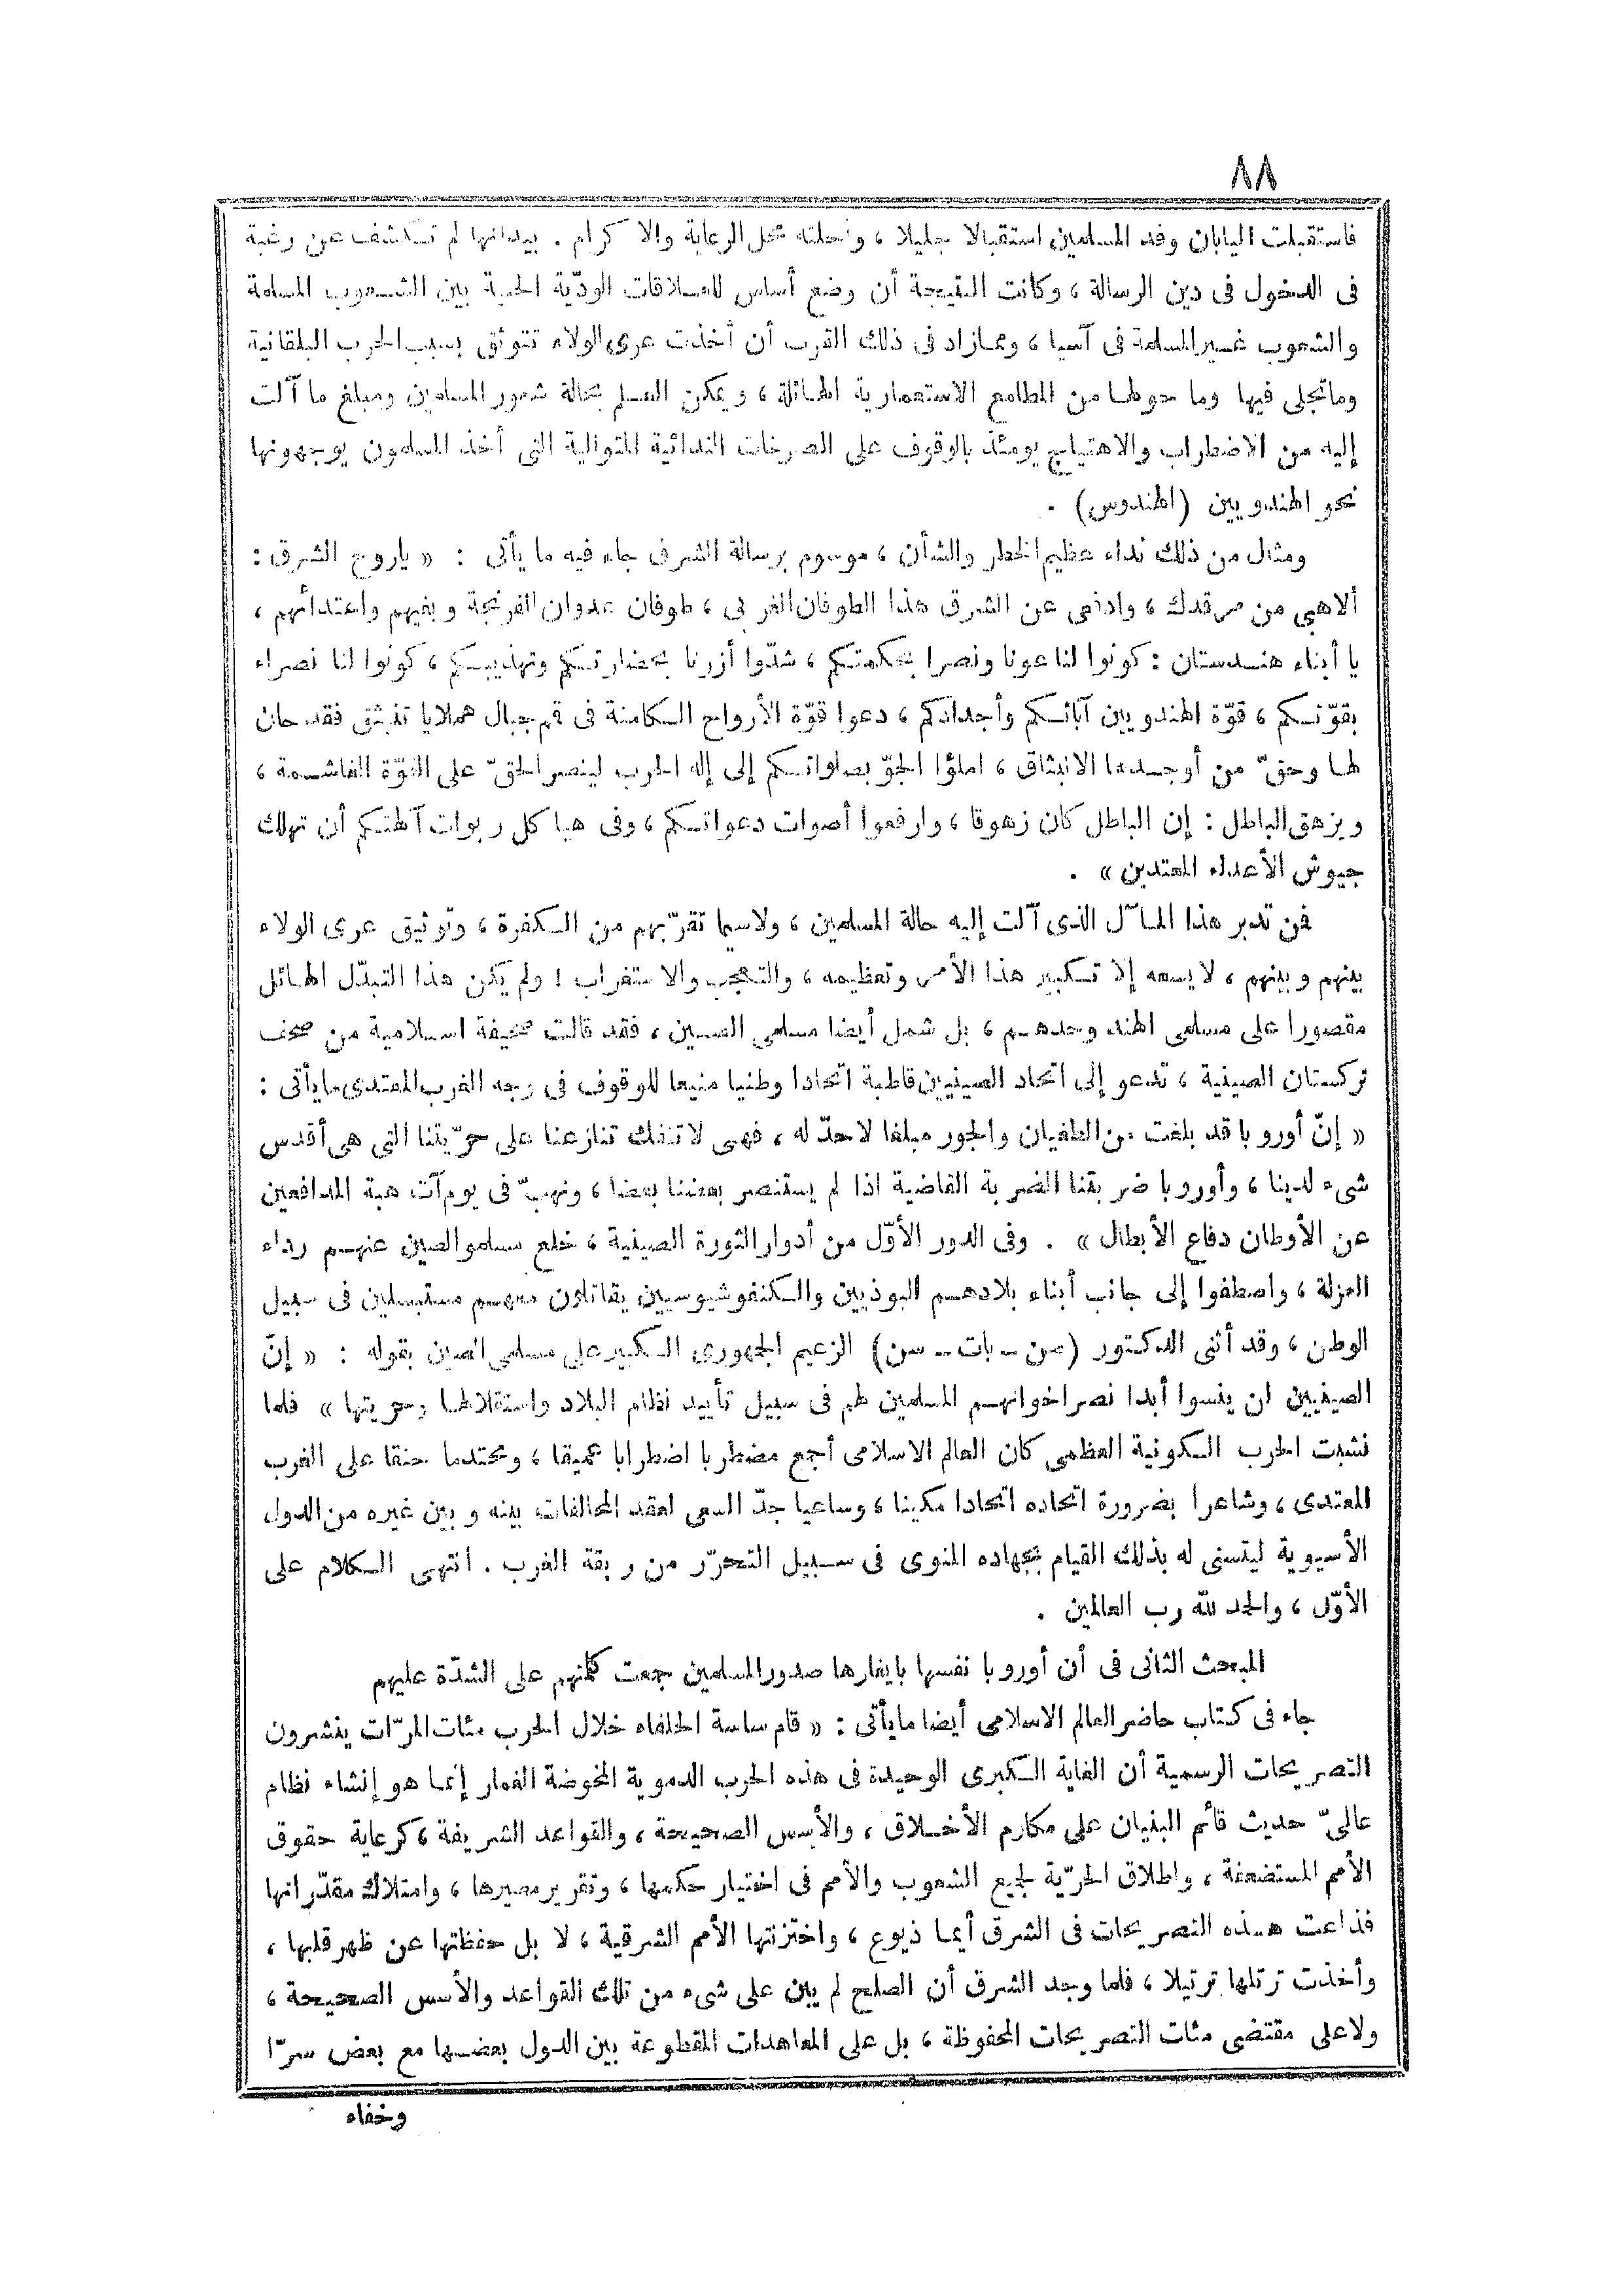 ٨٨
فاستقبلت اليابان وفد المسلمين استقبالا جليلا ، وأحلته محل الرعاية والا كرام . بيد أنها لم تكشف عن رغبة
فى الدخول فى دين الرسالة ، وكانت النتيجة أن وضع أساس للعلاقات الودّية الحبية بين الشعوب المسلمة
والشعوب غير المسلمة فى آسيا ، ومما زاد فى ذلك القرب أن أخذت عرى الولاء تتوثق بسبب الحرب البلقانية
وماتجلى فيها وما حولها من المطامع الاستعمارية الهائلة ، ويمكن العلم بحالة شعور المسلمين ومبلغ ما آلت
إليه من الاضطراب والاهتياج يومئذ بالوقوف على الصرخات الندائية المتوالية التى أخذ المسلمون يوجهونها
نحو الهندويين (الهندوس) .
ومثال من ذلك نداء عظيم الخطر والشأن ، موسوم برسالة الشرق جاء فيه ما يأتى : « ياروح الشرق :
ألاهبى من مرقدك ، وادفعى عن الشرق هذا الطوفان الغربى ، طوفان عدوان الفرنجة وبغيهم واعتدائهم ،
يا أبناء هندستان : كونوا لنا عونا ونصرا بحكمتكم ، شدّوا أزرنا بحضارتكم وتهذيبكم ، كونوا لنا نصراء
بقوّتكم ، قوّة الهندويين آبائكم وأجدادكم ، دعوا قوّة الأرواح الكامنة فى قم جبال هملايا تنبثق فقد حان
لها وحقّ من أوجدها الانبثاق ، املؤا الجوّ بصلواتكم إلى إله الحرب لينصر الحقّ على القوّة الغاشمة ،
ويزهق الباطل : إن الباطل كان زهوقا ، وارفعوا أصوات دعواتكم ، وفى هياكل ربوات آلهتكم أن تهلك
جيوش الأعداء المعتدين » .
فمن تدبر هذا المآل الذى آلت إليه حالة المسلمين ، ولاسيما تقرّبهم من الكفرة ، وتوثيق عرى الولاء
بينهم وبينهم ، لا يسعه إلا تكبير هذا الأمر وتعظيمه ، والتعجب والاستغراب ! ولم يكن هذا التبدّل الهائل
مقصورا على مسلمى الهند وحدهم ، بل شمل أيضا مسلمى الصين ، فقد قالت صحيفة اسلامية من صحف
تركستان الصينية ، تدعو إلى اتحاد الصينيين قاطبة اتحادا وطنيا منيعا للوقوف فى وجه الغرب المعتدى مايأتى :
« إنّ أوروبا قد بلغت من الطغيان والجور مبلغا لاحدّ له ، فهى لاتنفك تنازعنا على حرّيتنا التى هى أقدس
شىء لدينا ، وأوروبا ضربتنا الضربة القاضية اذا لم يستنصر بعضنا بعضا ، ونهبّ فى يوم آت هبة المدافعين
عن الأوطان دفاع الأبطال » . وفى الدور الأوّل من أدوار الثورة الصينية ، خلع مسلمو الصين عنهم رداء
العزلة ، واصطفوا إلى جانب أبناء بلادهم البوذيين والكنفوشيوسيين يقاتلون معهم مستبسلين فى سبيل
الوطن ، وقد أثنى الدكتور (صن - بات - سن) الزعيم الجمهورى الكبير على مسلمى الصين بقوله : « إنّ
الصينيين لن ينسوا أبدا نصر اخوانهم المسلمين لهم فى سبيل تأييد نظام البلاد واستقلالها وحريتها » فلما
نشبت الحرب الكونية العظمى كان العالم الاسلامى أجمع مضطربا اضطرابا عميقا ، ومحتدما حنقا على الغرب
المعتدى ، وشاعرا بضرورة اتحاده اتحادا مكينا ، وساعيا جدّ السعى لعقد المحالفات بينه وبين غيره من الدول
الأسيوية ليتسنى له بذلك القيام بجهاده المنوى فى سبيل التحرّر من ربقة الغرب . انتهى الكلام على
الأوّل ، والحمد لله رب العالمين .
المبحث الثانى فى أن أوروبا نفسها بايغارها صدور المسلمين جمعت كلمتهم على الشدّة عليهم
جاء فى كتاب حاضر العالم الاسلامى أيضا مايأتى : « قام ساسة الحلفاء خلال الحرب مئات المرّات ينشرون
التصريحات الرسمية أن الغاية الكبرى الوحيدة فى هذه الحرب الدموية المخوضة الغمار إنما هو إنشاء نظام
عالمىّ حديث قائم البنيان على مكارم الأخلاق ، والأسس الصحيحة ، والقواعد الشريفة ، كرعاية حقوق
الأمم المستضعفة ، واطلاق الحرّية لجميع الشعوب والأمم فى اختيار حكمها ، وتقرير مصيرها ، وامتلاك مقدّراتها
فذاعت هذه التصريحات فى الشرق أيما ذيوع ، واختزنتها الأمم الشرقية ، لا بل حفظتها عن ظهر قلبها ،
وأخذت ترتلها ترتيلا ، فلما وجد الشرق أن الصلح لم يبن على شىء من تلك القواعد والأسس الصحيحة ،
ولاعلى مقتضى مئات التصريحات المحفوظة ، بل على المعاهدات المقطوعة بين الدول بعضها مع بعض سرّا
وخفاء